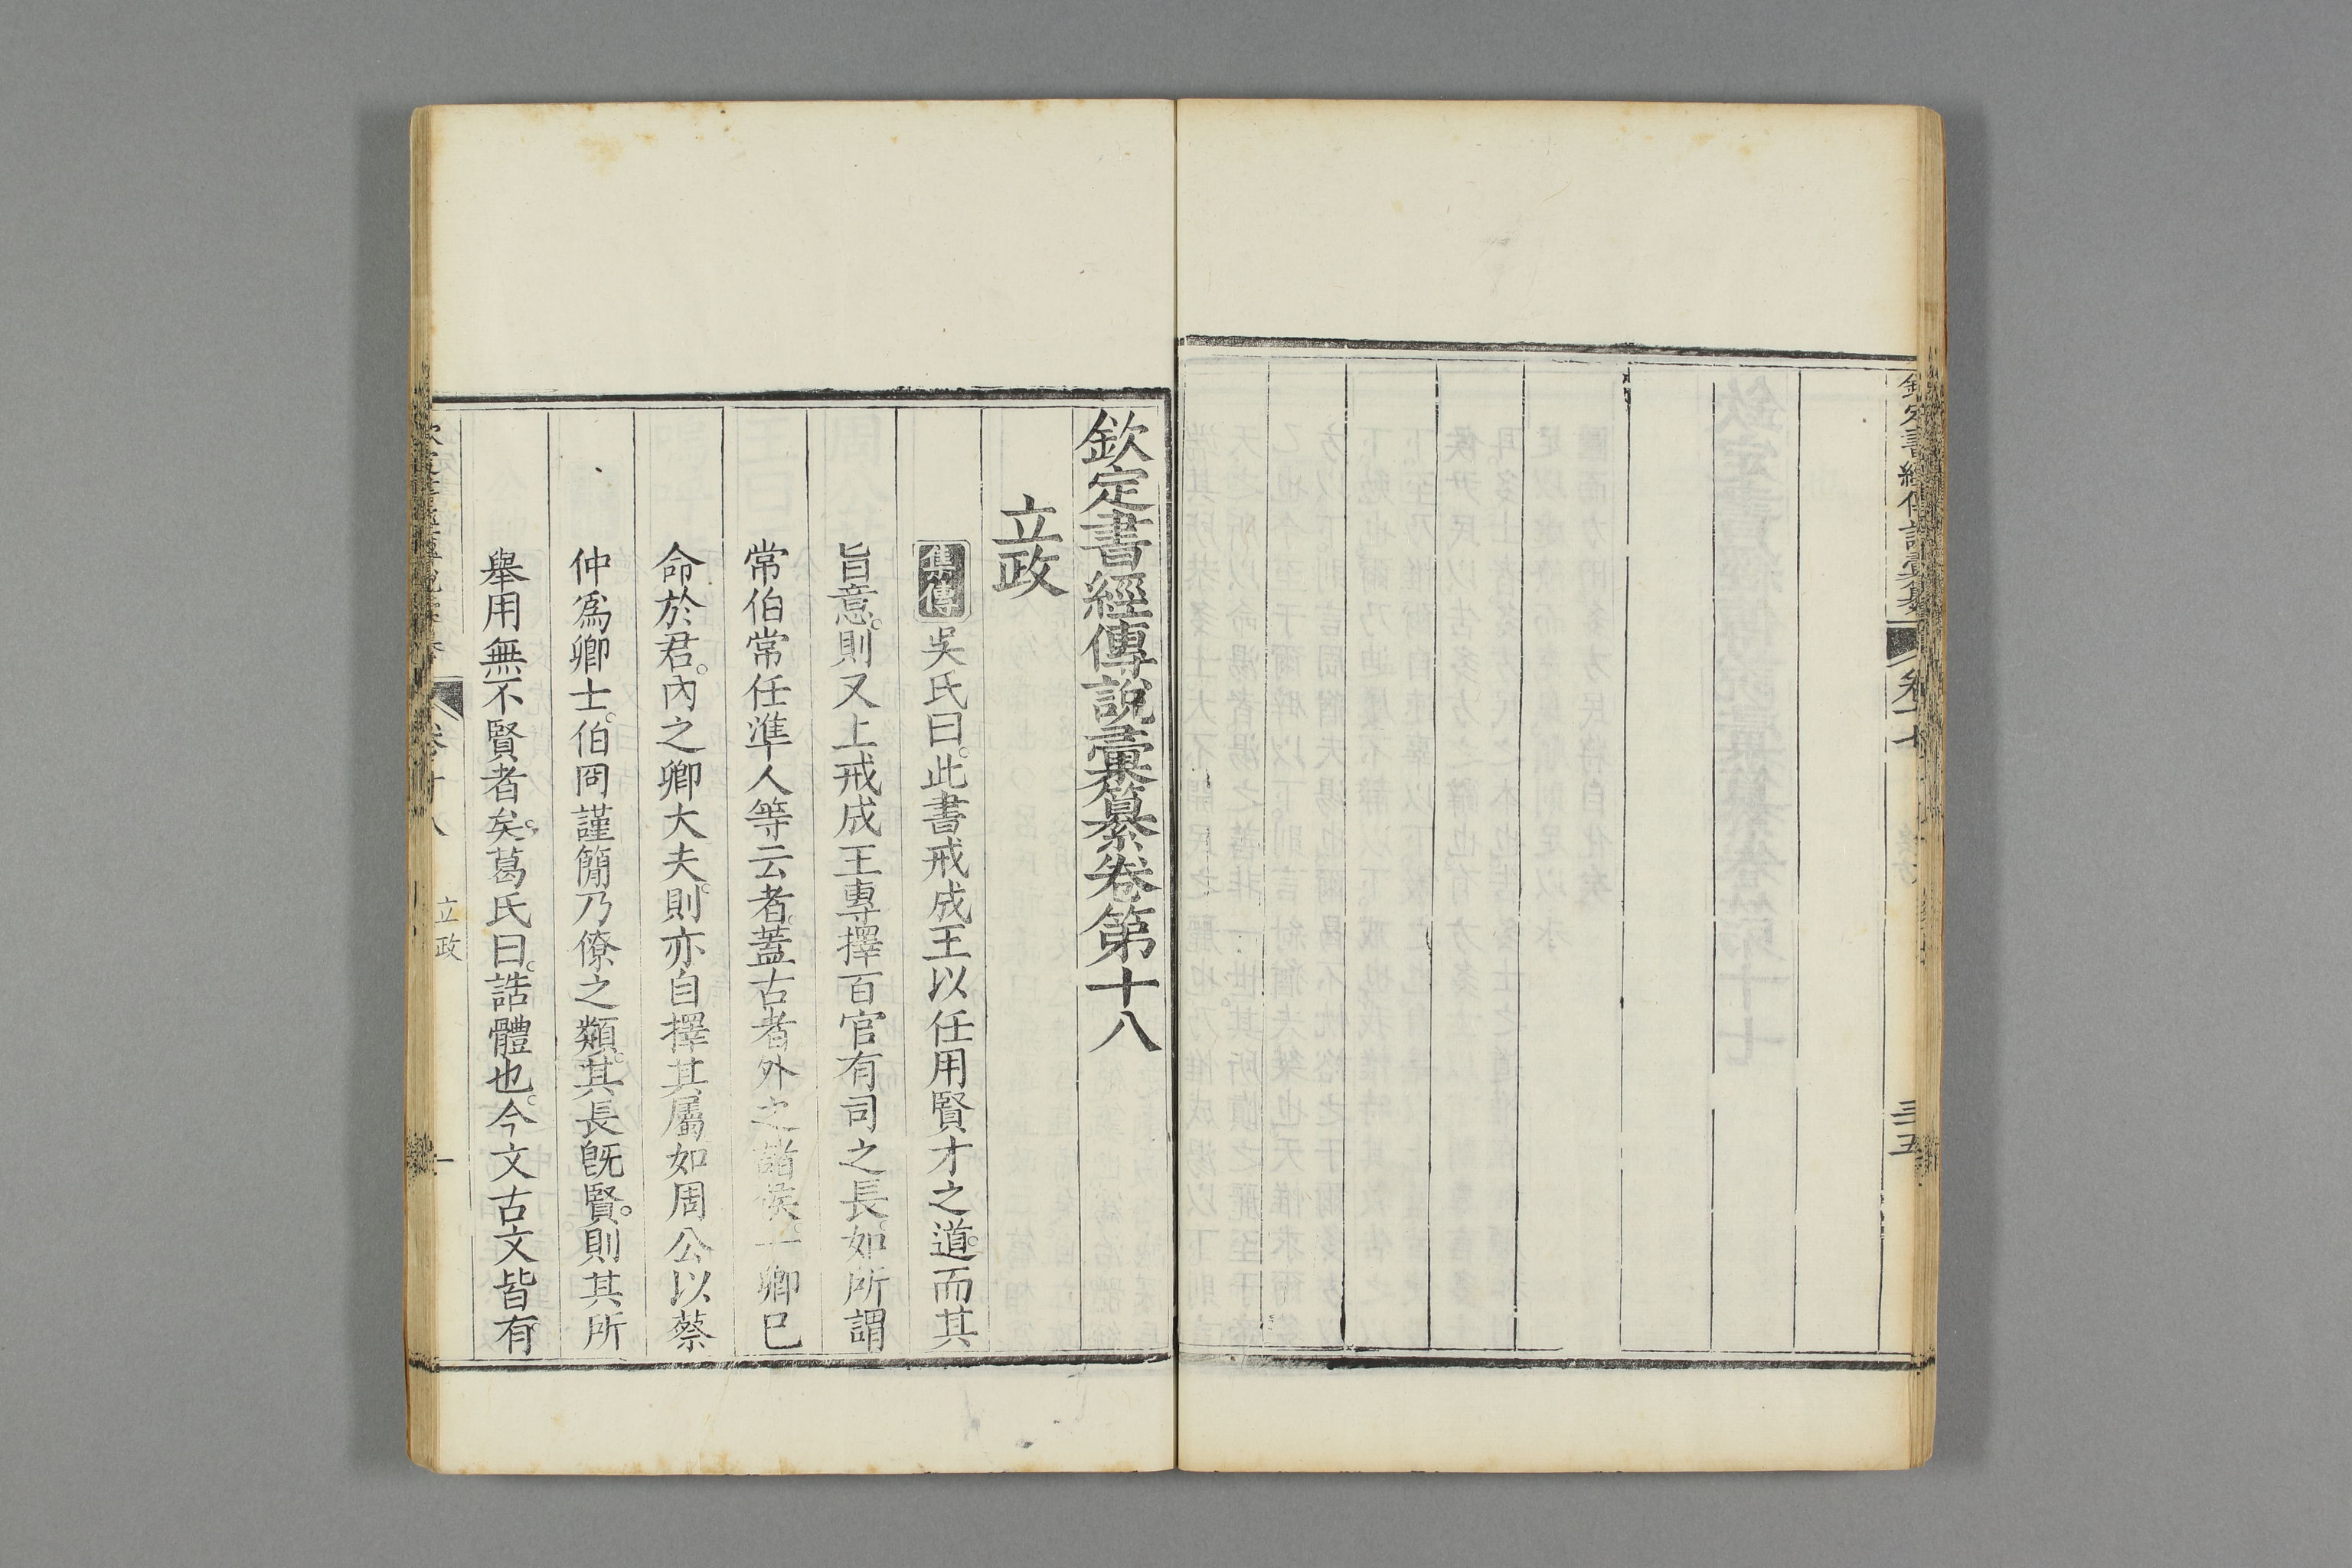 欽定書經傳說彙纂
卷十七
三五
欽定書經傳說彙纂卷第十八
立政
集傳吳氏曰此書戒成王以任用賢才之道而其
旨意則又上戒成王專擇百官有司之長如所謂
常伯常任準人等云者蓋古者外之諸侯一卿已
命於君內之卿大夫則亦自擇其屬如周公以蔡
仲爲卿士伯冏謹簡乃僚之類其長旣賢則其所
舉用無不賢者矣葛氏曰誥體也今文古文皆有
卷十八
立政
一